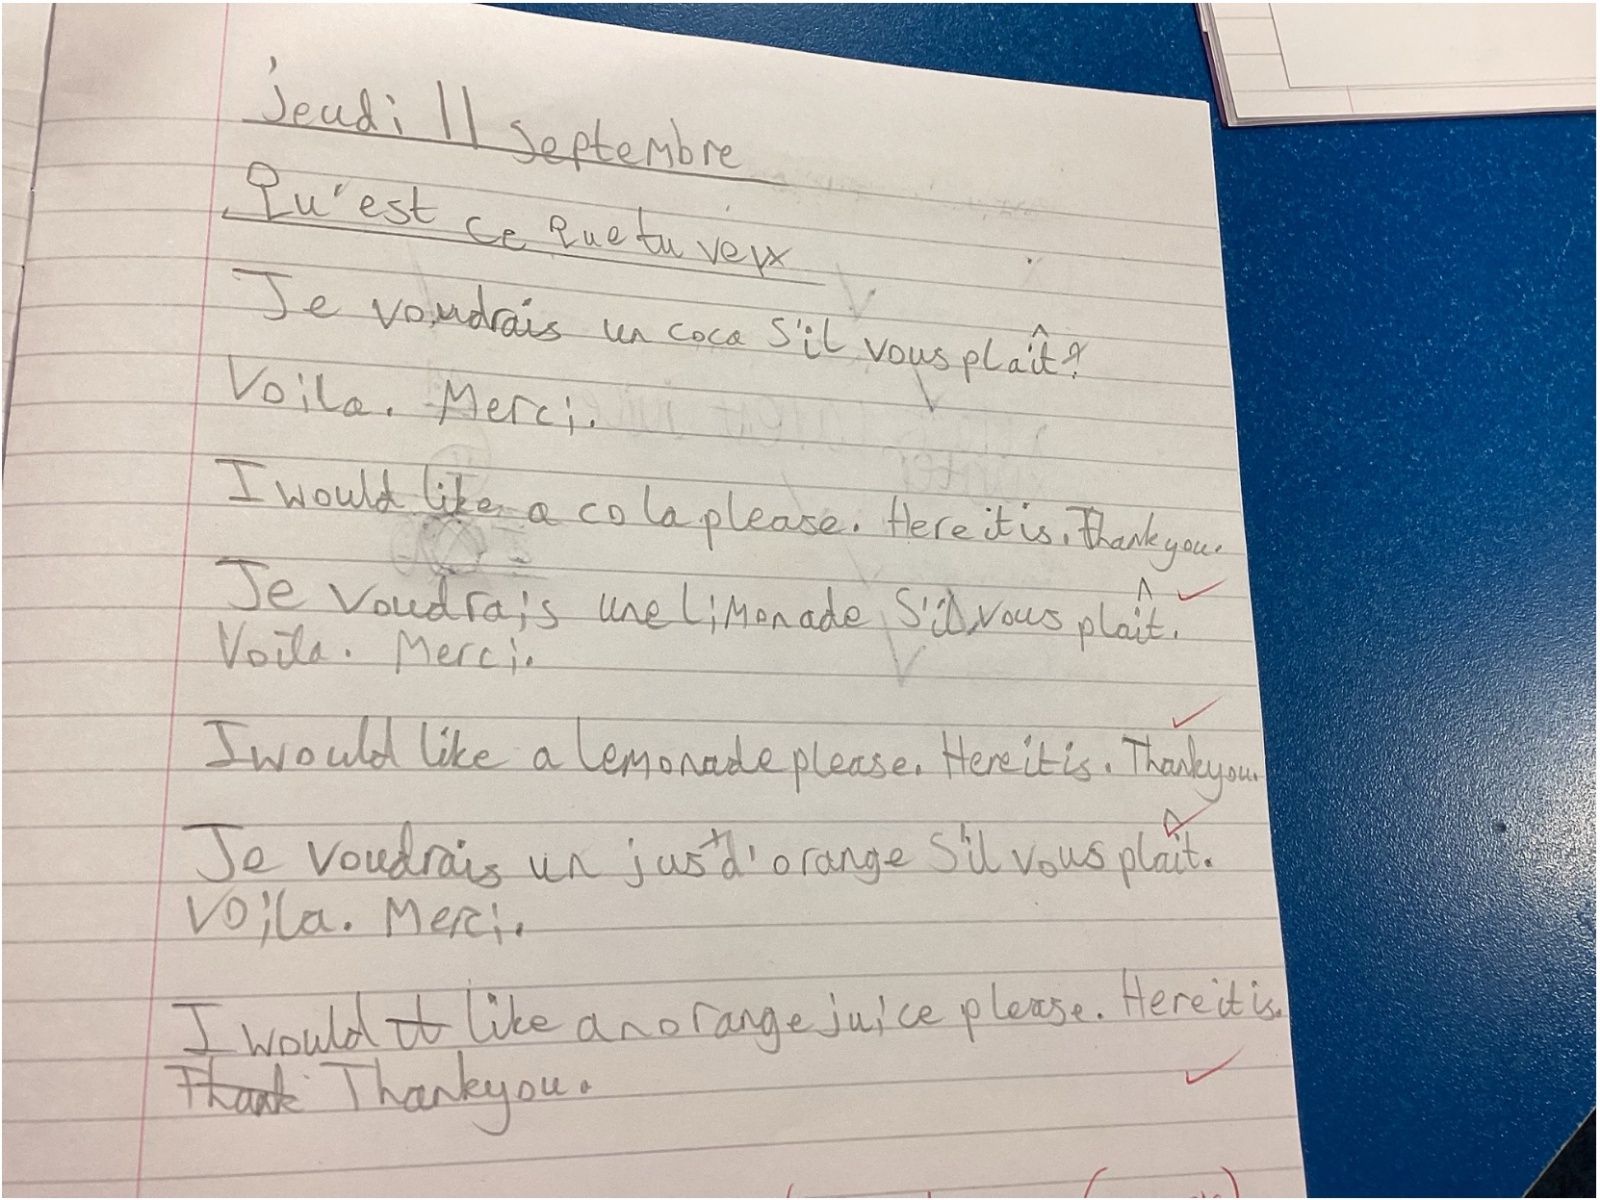 jeudi 11 septembre
Qu'est ce que tu veux
Je voudrais un coca s'il vous plaît?
Voila. Merci.
I would like a cola please. Here it is. Thankyou.
Je voudrais une limonade s'il vous plaît.
Voila. Merci.
I would like a lemonade please. Here it is. Thankyou.
Je voudrais un jus d'orange s'il vous plaît.
Voila. Merci.
I would tt like an orange juice please. Here it is.
Thank Thankyou.